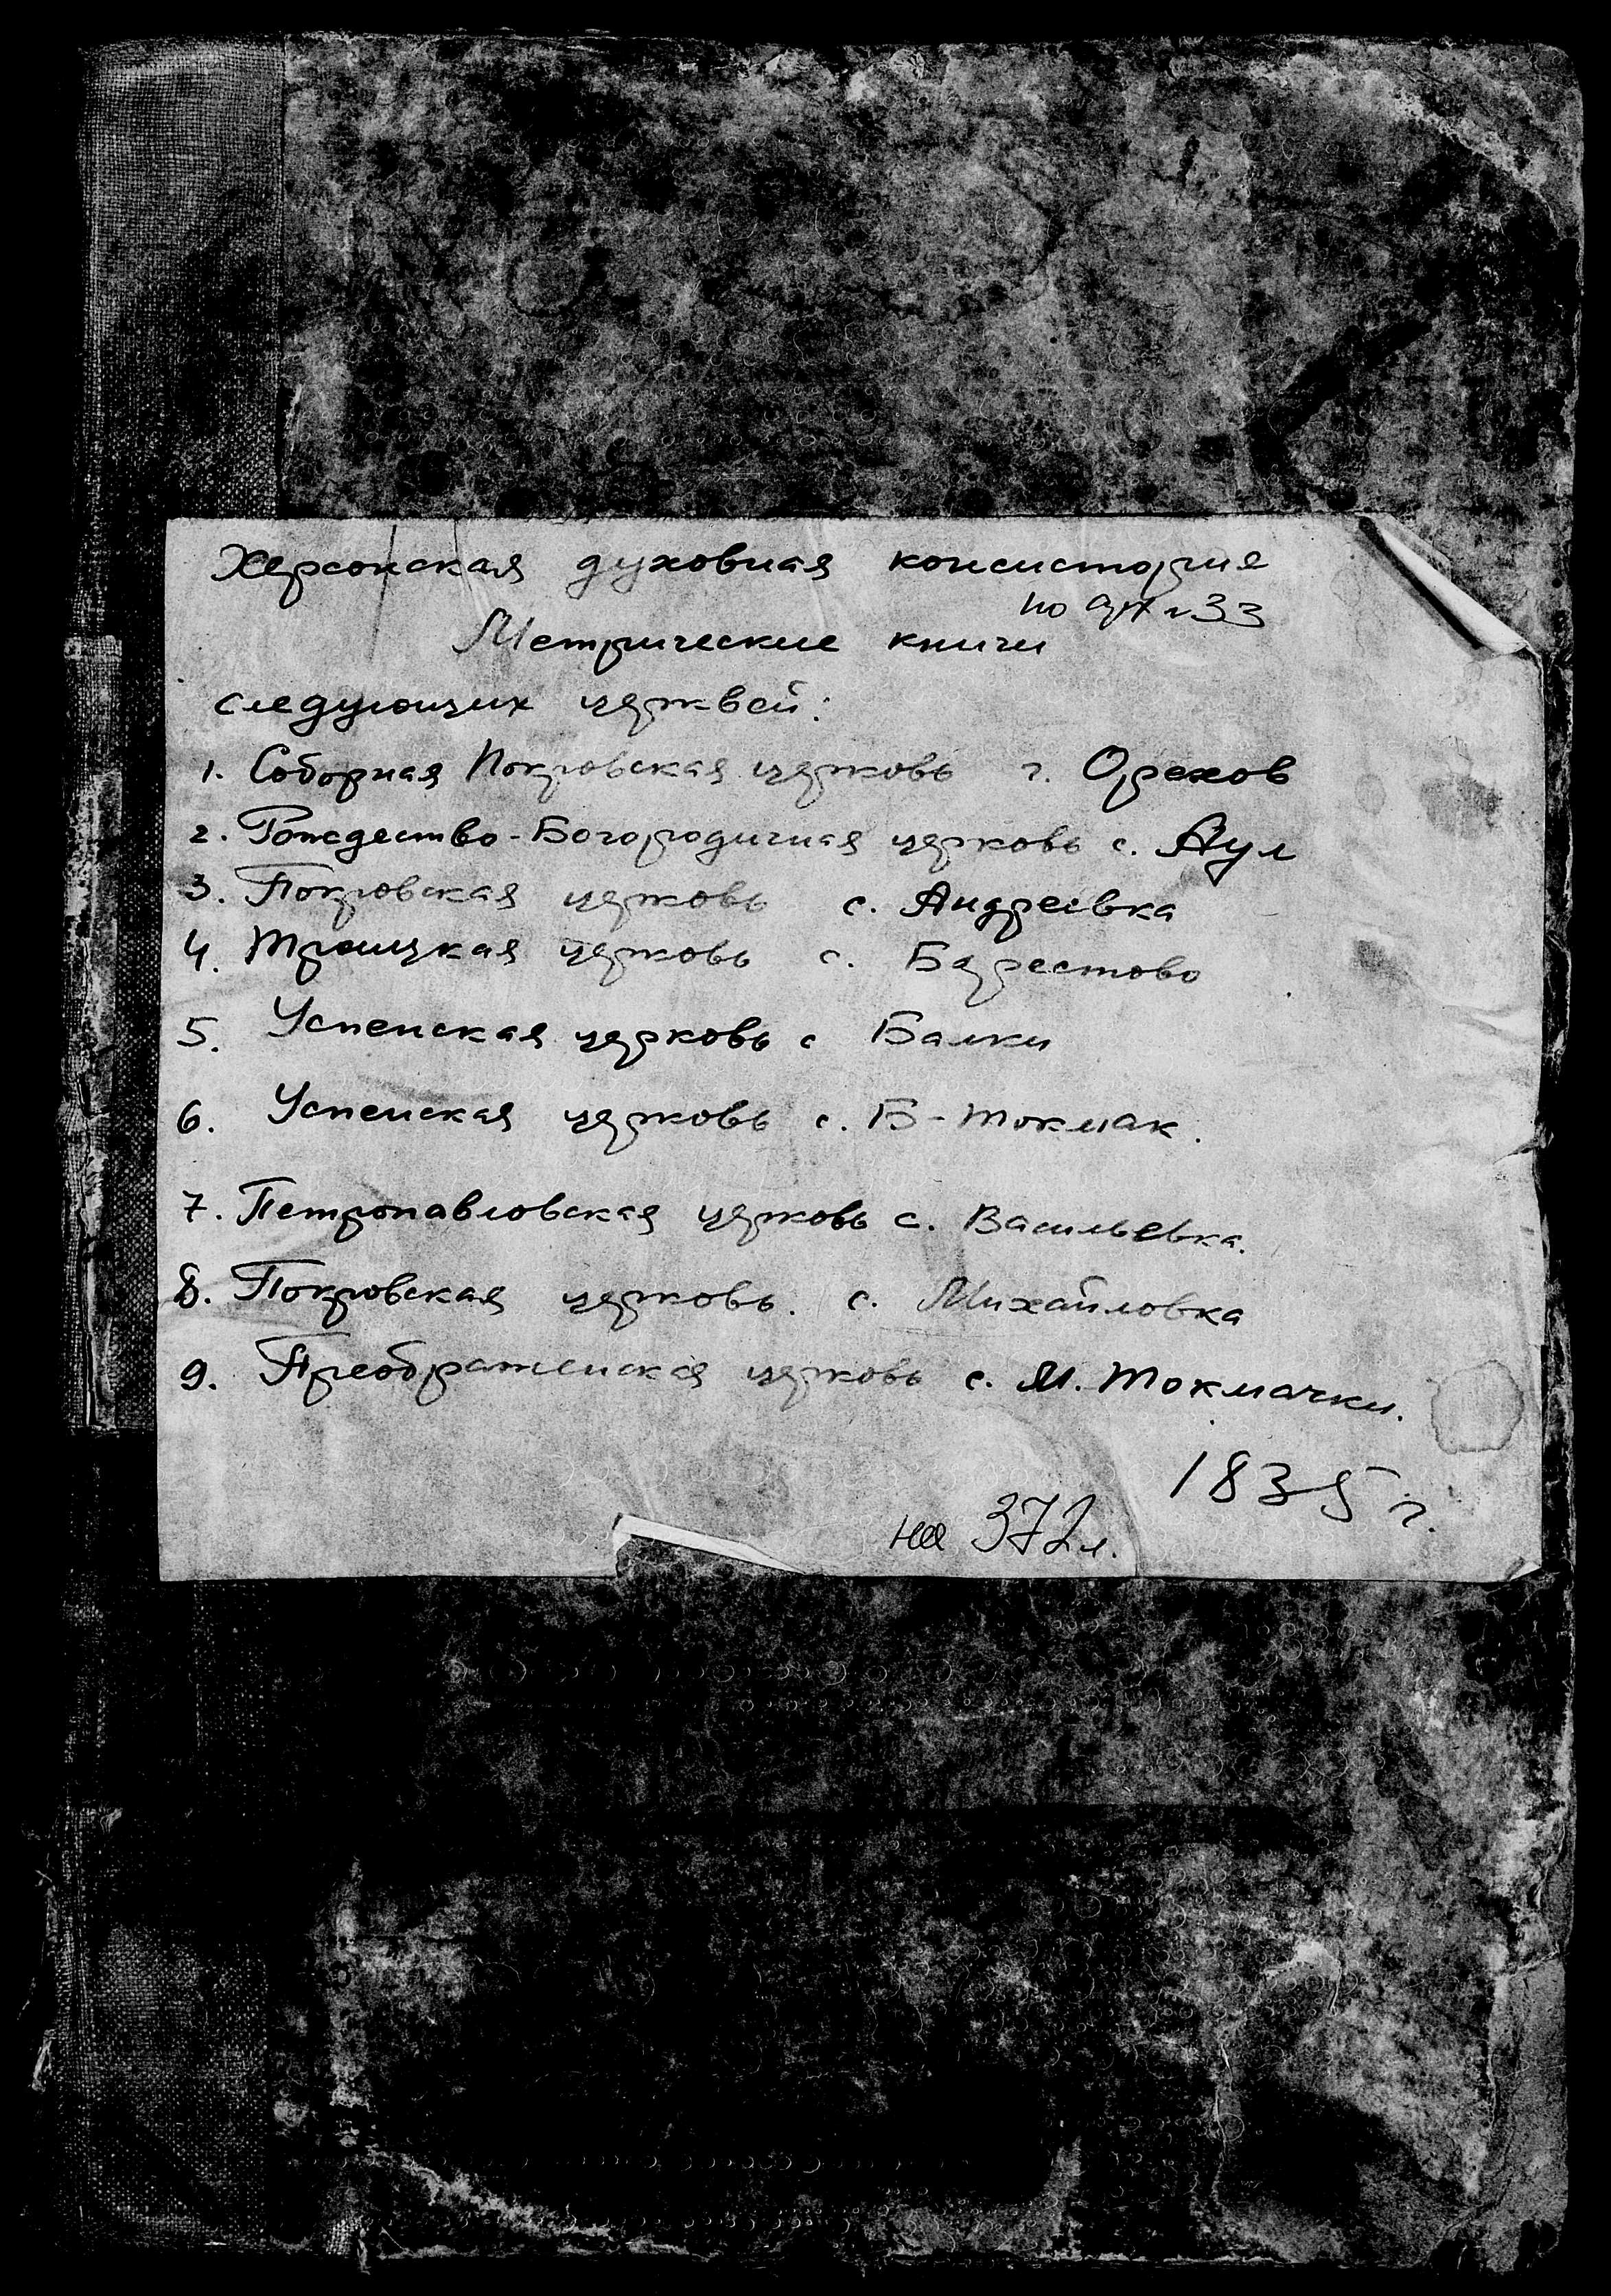 Херсонская духовная консистория
Метрические книги
следующих церквей:
1. Соборная Покровская церковь г. Орехов
2. Рождество-Богородичная церковь с. Аул
3. Покровская церковь с. Андреевка
4. Троицкая церковь с. Берестово
5. Успенская церковь с Балки
6. Успенская церковь с. Б-Токмак.
7. Петропавловская церковь с. Васильевка.
8. Покровская церковь. с. Михайловка
9. Преображенская церковь с. М. Токмачки.
1835 г.
на 372 л.